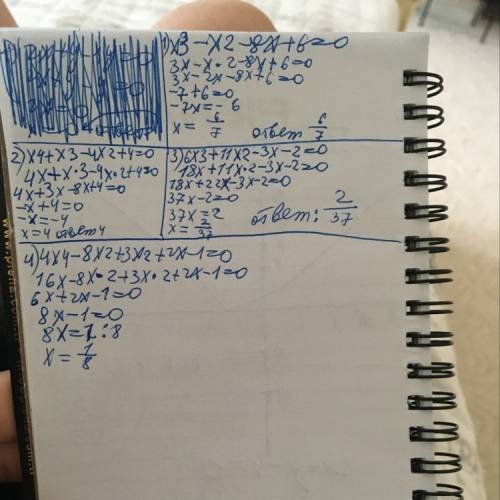 1) x3-x2-8x+6=0
3x-x·2-8x+6=0
3x-2x-8x+6=0
-7+6=0
-7x=-6
x=6/7 ответ 6/7
2) x4+x3-4x2+4=0
4x+x·3-4x·2+4=0
4x+3x-8x+4=0
-x+4=0
-x=-4
x=4 ответ 4
3) 6x3+11x2-3x-2=0
18x+11x·2-3x-2=0
18x+22x-3x-2=0
37x-2=0
37x=2
x=2/37 ответ: 2/37
4) 4x4-8x2+3x2+2x-1=0
16x-8x·2+3x·2+2x-1=0
6x+2x-1=0
8x-1=0
8x=1:8
x=1/8